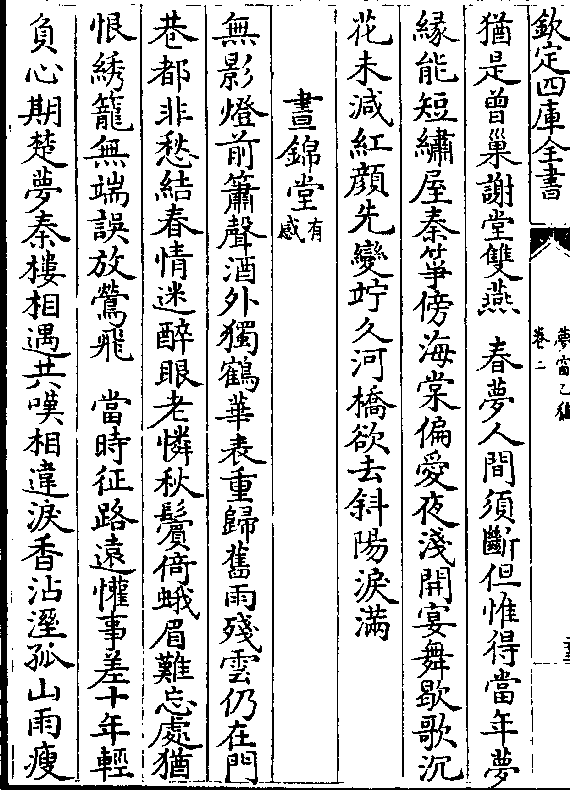 欽定四庫全書
夢窗乙稿
卷二
猶是曾巢謝堂雙燕　春夢人間須斷但惟得當年夢
縁能短繡屋秦箏傍海棠偏愛夜淺開宴舞歇歌沉
花未減紅顔先變竚久河橋欲去斜陽淚滿
晝錦堂有感
無影燈前簫聲酒外獨鶴華表重歸舊雨殘雲仍在門
巷都非愁結春情迷醉眼老憐秋鬢倚蛾眉難忘處猶
恨綉籠無端誤放鶯飛　當時征路遠懽事差十年輕
負心期楚夢秦樓相遇共嘆相違淚香沾溼孤山雨瘦